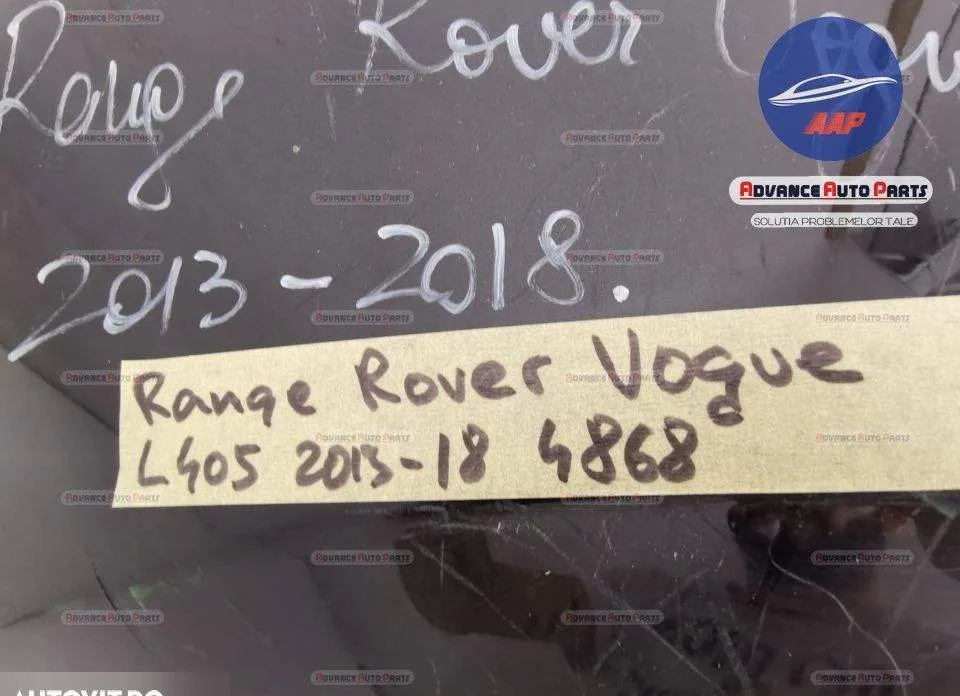 Range Rover Vogue
2013-2018.
Range Rover Vogue
L405 2013-18 4868
AAP
ADVANCE AUTO PARTS
SOLUTIA PROBLEMELOR TALE
AUTOVIT.RO